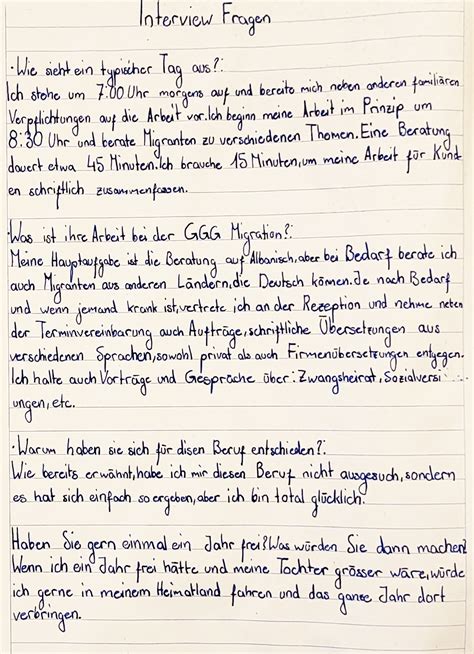 Interview Fragen
· Wie sieht ein typischer Tag aus?:
Ich stehe um 7:00 Uhr morgens auf und bereite mich neben anderen familiären
Verpflichtungen auf die Arbeit vor. Ich beginn meine Arbeit im Prinzip um
8:30 Uhr und berate Migranten zu verschiedenen Themen. Eine Beratung
dauert etwa 45 Minuten. Ich brauche 15 Minuten, um meine Arbeit für Kund
en schriftlich zusammenfassen.
· Was ist ihre Arbeit bei der GGG Migration?:
Meine Hauptaufgabe ist die Beratung auf Albanisch, aber bei Bedarf berate ich
auch Migranten aus anderen Ländern, die Deutsch können. Je nach Bedarf
und wenn jemand krank ist, vertrete ich an der Rezeption und nehme neben
der Terminvereinbarung auch Aufträge, schriftliche Übersetzungen aus
verschiedenen Sprachen, sowohl privat als auch Firmenübersetzungen entgegen.
Ich halte auch Vorträge und Gespräche über: Zwangsheirat,
ungen, etc.
· Warum haben sie sich für disen Beruf entschieden?:
Wie bereits erwähnt, habe ich mir diesen Beruf nicht ausgesuch, sondern
es hat sich einfach so ergeben, aber ich bin total glücklich.
Haben Sie gern einmal ein Jahr frei? Was würden Sie dann machen?
Wenn ich ein Jahr frei hätte und meine Tochter grösser wäre, würde
ich gerne in meinem Heimatland fahren und das ganze Jahr dort
verbringen.